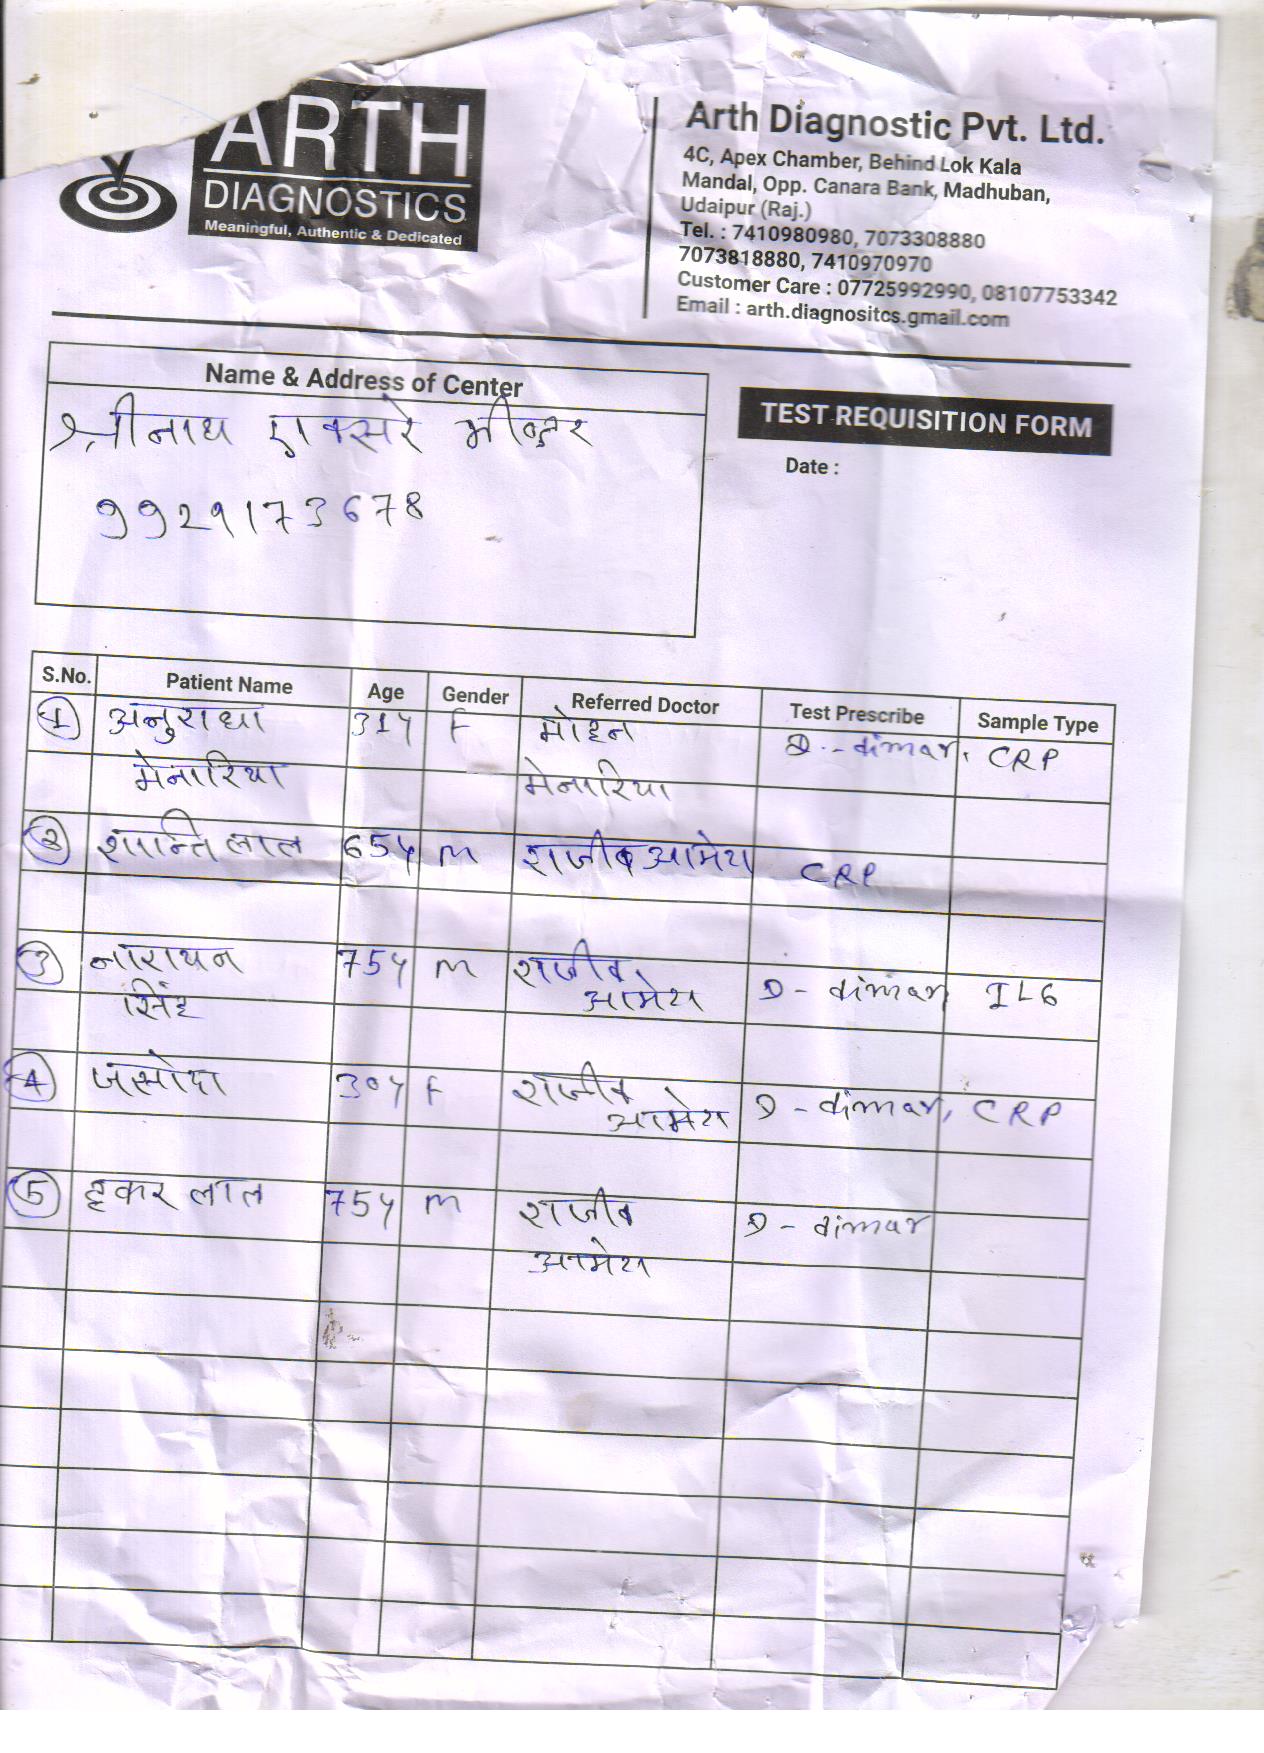 ARTH
DIAGNOSTICS
Meaningful, Authentic & Dedicated
Arth Diagnostic Pvt. Ltd.
4C, Apex Chamber, Behind Lok Kala
Mandal, Opp. Canara Bank, Madhuban,
Udaipur (Raj.)
Tel. : 7410980980, 7073308880
7073818880, 7410970970
Customer Care : 07725992990, 08107753342
Email : arth.diagnositcs.gmail.com
Name & Address of Center
श्रीनाथ एक्सरे
9929173678
TEST REQUISITION FORM
Date :
S.No. Patient Name Age Gender Referred Doctor Test Prescribe Sample Type
1 अनुराधा 31y F मोहन D.-dimar, CRP
मेनारिया मेनारिया
2 शान्ति लाल 65y m राजीव आमेय CRP
3 नारायन 75y m राजीव D-dimar, IL6
सिंह आमेय
4 जसोदा 30y F राजीव D-dimar, CRP
आमेय
5 लाल 75y m राजीव D-dimar
आमेय